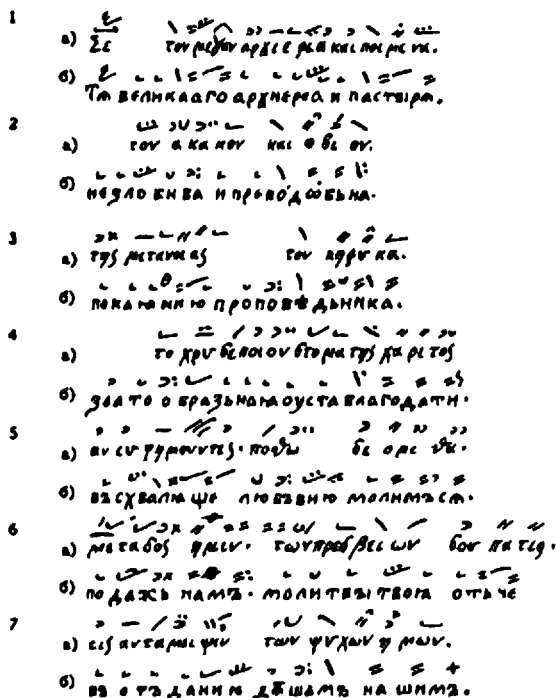 1
а) Σε τον μεγαν αρχιερεα και ποιμενα.
б) Тѧ великааго архиереа и пастырѧ.
2
а) τον ακακον και οσιον.
б) незлобива и прѣподобьна.
3
а) της μετανοιας τον κηρυκα.
б) покаꙗнию проповѣдьника.
4
а) το χρυσεποιον στομα της χαριτος
б) златообразьнаꙗ оуста благодати.
5
а) ανευφημουντες. ποθω δεομεθα.
б) въсхвалꙗюще любъвию молимъсѧ.
6
а) μεταδος ημιν. των πρεσβειων σου πατερ.
б) подажь намъ. молитвы твоꙗ отьче
7
а) εις ανταμειψιν των ψυχων ημων.
б) въ отъдание дѣшамъ нашимъ.